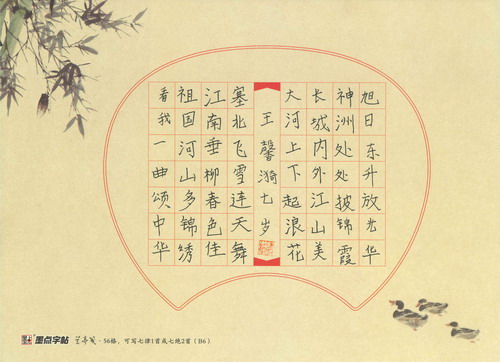 旭日东升放光华
神洲处处披锦霞
长城内外江山美
大河上下起浪花
王馨漪七岁
塞北飞雪连天舞
江南垂柳春色佳
祖国河山多锦绣
看我一曲颂中华
墨点字帖 兰亭笺·56格，可写七律1首或七绝2首（B6）